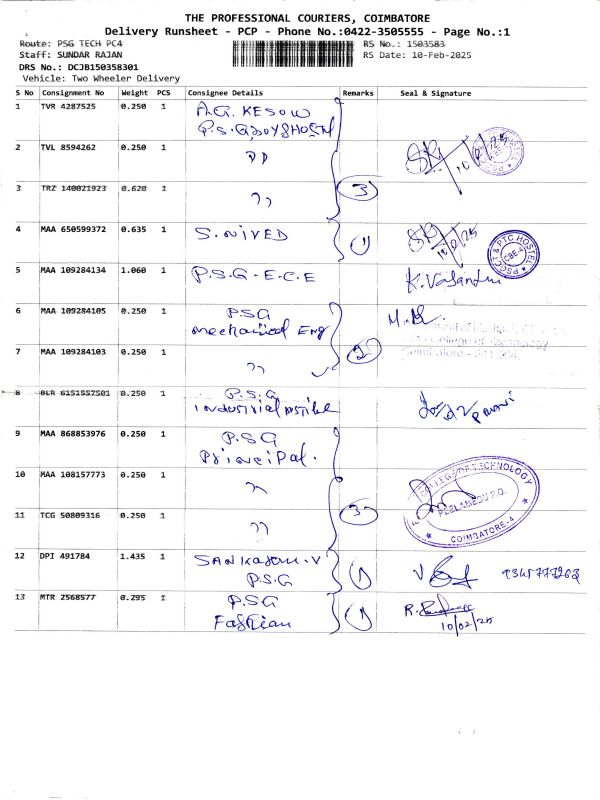 THE PROFESSIONAL COURIERS, COIMBATORE
Delivery Runsheet - PCP - Phone No.:0422-3505555 - Page No.:1
Route: PSG TECH PC4
RS No.: 1503583
Staff: SUNDAR RAJAN
RS Date: 10-Feb-2025
DRS No.: DCJB150358301
Vehicle: Two Wheeler Delivery
S No Consignment No Weight PCS Consignee Details Remarks Seal & Signature
1 TVR 4287525 0.250 1 A.G. KESOW
P.S.G BOYS HOSTEL
2 TVL 8594262 0.250 1 ''
3 TRZ 140021923 0.620 1 '' 3
4 MAA 650599372 0.635 1 S.NIVED 1
PSGCT & PTC HOSTEL
CBE-4
5 MAA 109284134 1.060 1 P.S.G - E.C.E
6 MAA 109284105 0.250 1 PSG
mechanical Eng
7 MAA 109284103 0.250 1 '' 2
College of Technology
Coimbatore - 641 004.
8 BLR 6151557501 0.250 1 P.S.G
9 MAA 868853976 0.250 1 P.SG
Principal.
10 MAA 108157773 0.250 1 ''
11 TCG 50809316 0.250 1 '' 3
COLLEGE OF TECHNOLOGY
PEELAMEDU P.O.
COIMBATORE-4
12 DPI 491784 1.435 1 P.S.G 1
13 MTR 2568577 0.295 1 PSG 1
Fashion
10/02/25